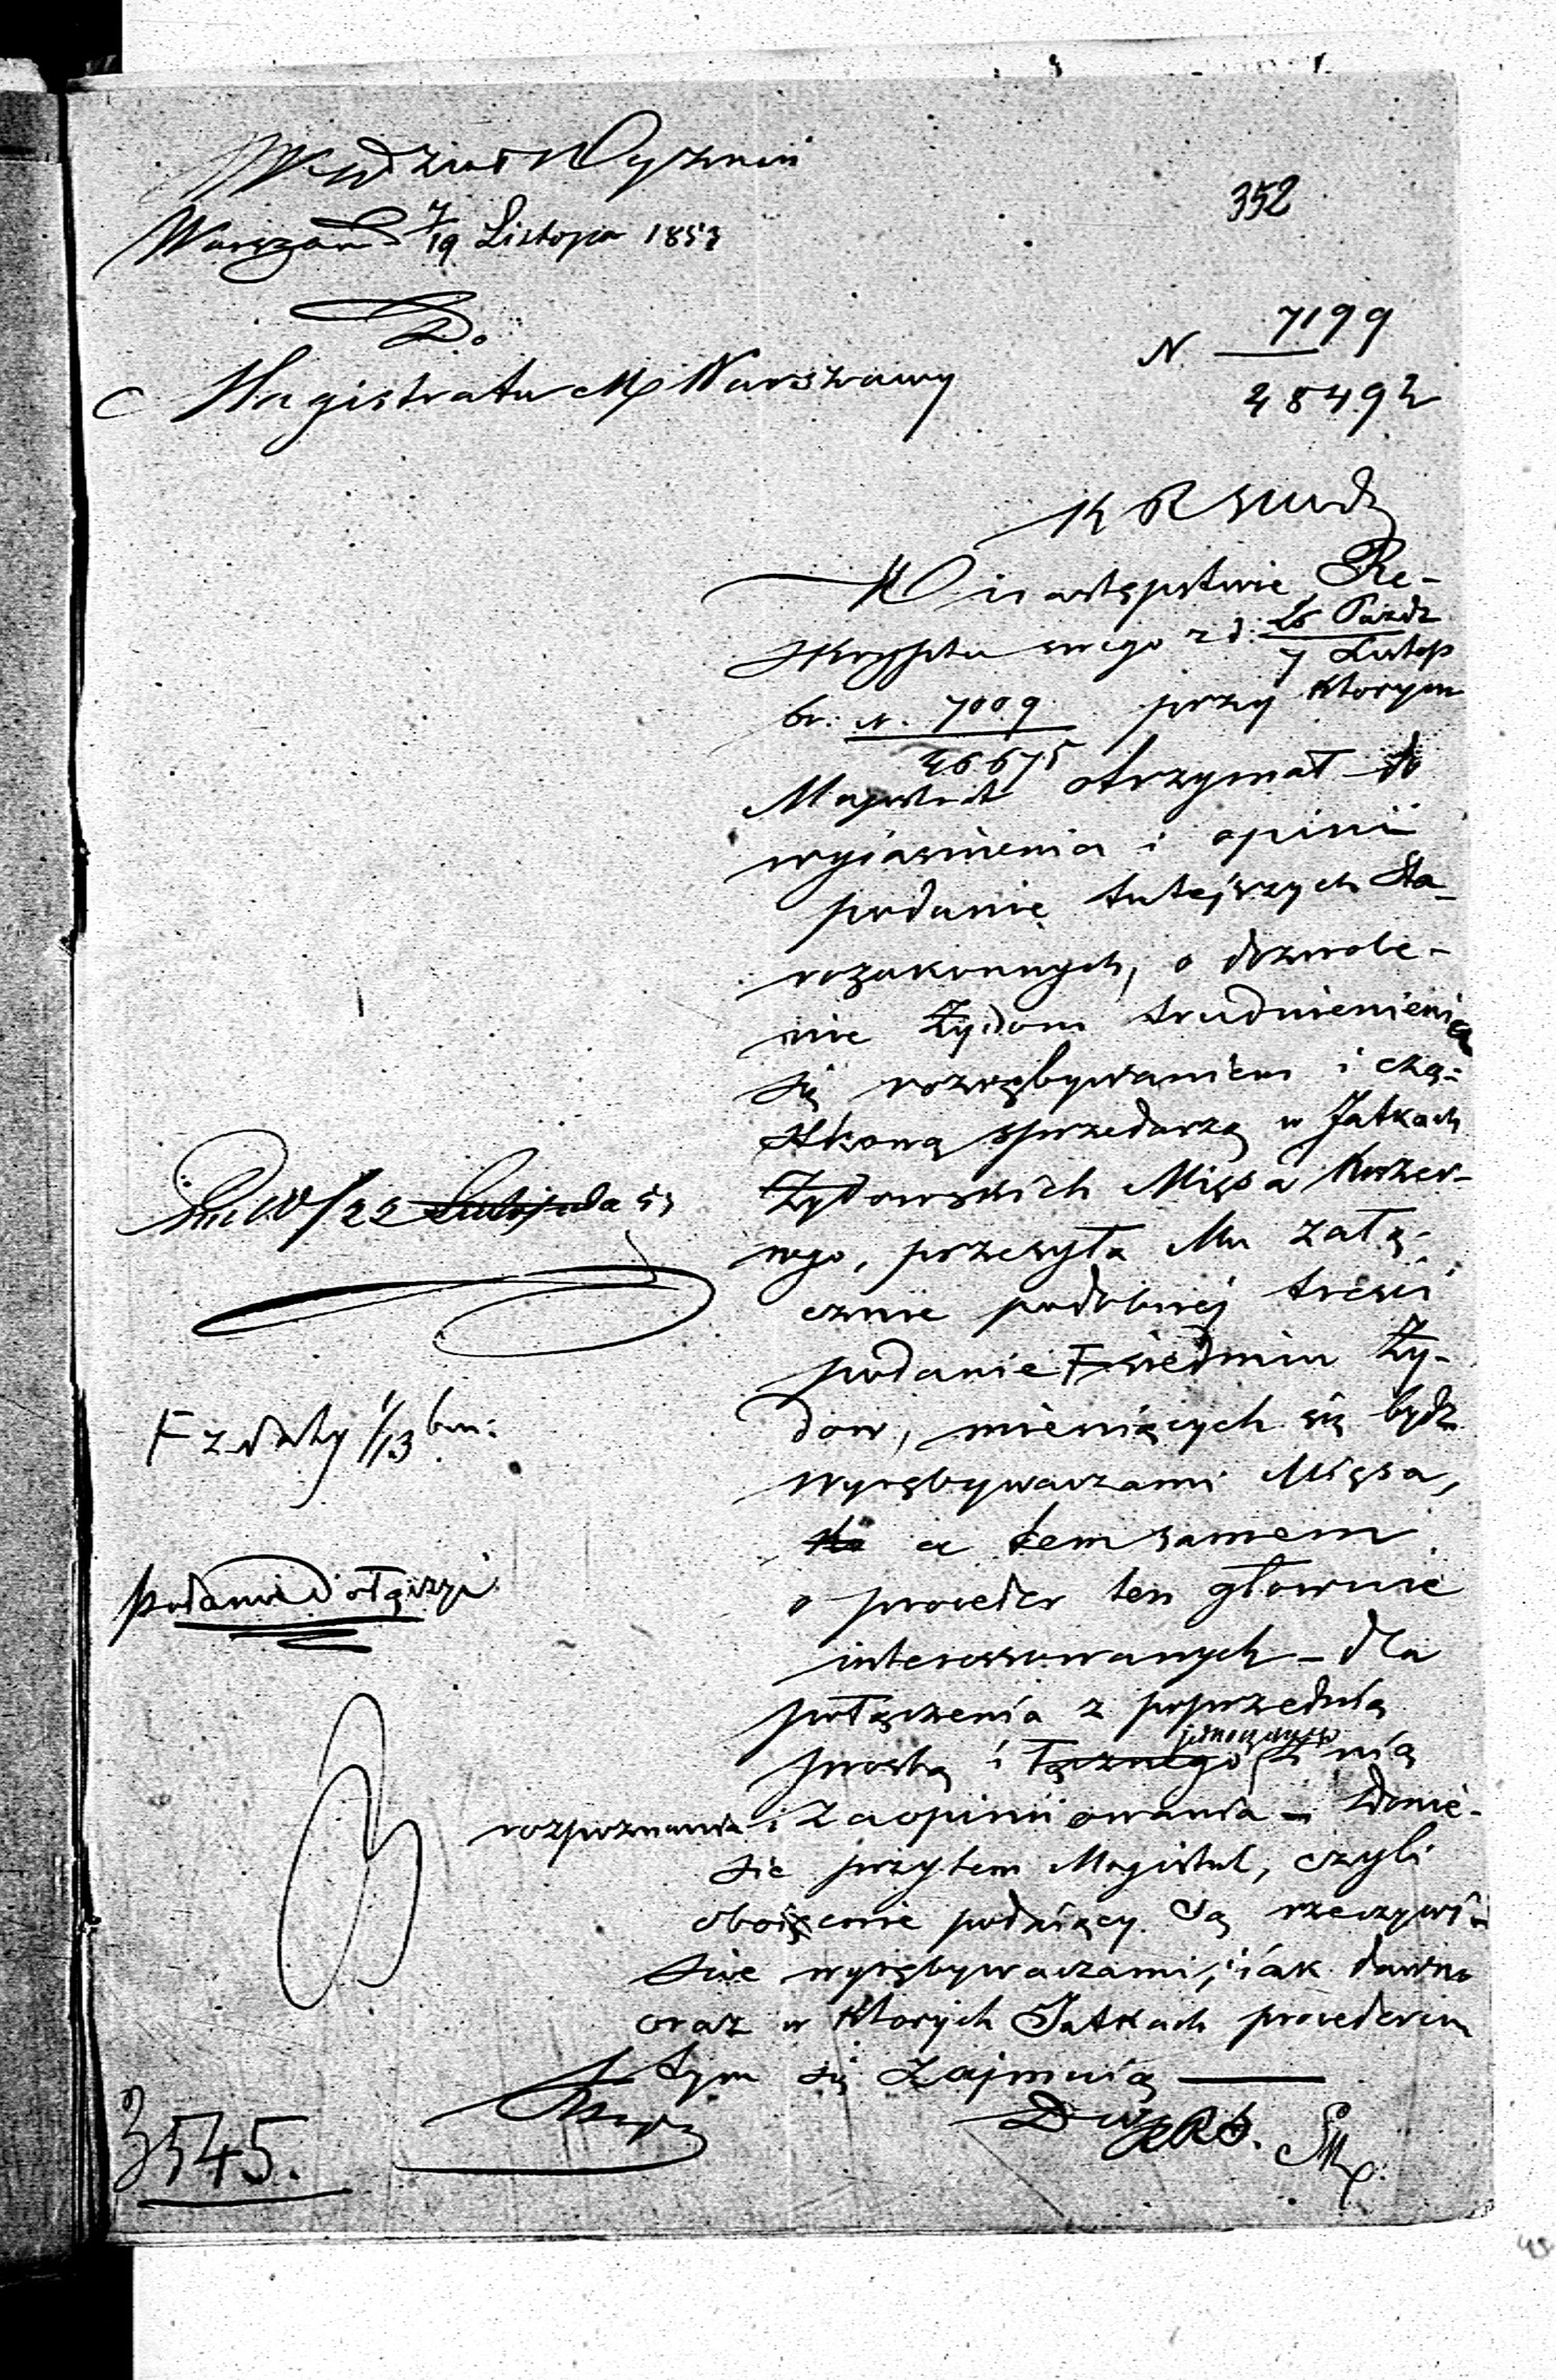 Wydział Wyznań
352
Warszawa 7/19 Listopa 1853
Do
Magistratu M Warszawy
N 7199
28492
K R S W i D
W następstwie Re-
skryptu swego z d: 26 Pazdz
7 Listop
br: N. 7009 przy ktorym
26675
Magistrat otrzymał do
wyiasnienia i opinii
podanie tutejszych Sta-
rozakonnych, o dozwole-
nie Żydom trudnienienia
się rozrębywaniem i czą-
stkową sprzedarzą w Jatkach
Żydowskich Mięsa Koszer-
nego, przesyła Mu załą-
cznie podobnej treści
podanie F siedmiu Ży-
dow, mieniących się bydz
wyrębywaczami Mięsa,
a tem samem
o proceder ten głownie
interessowanych - dla
połączenia z poprzednią
prosbą i łącznego jednoczesnego z nią
rozpoznania i zaopiniiowania - Donie-
sie przytem Magistrat, czyli
obecnie podaiący są rzeczywi-
ście wyrębywaczami, iak dawno
oraz w ktorych Jatkach procederem
tym się zajmuią
Dnia 10/22 Listopada 53
F z daty 1/13 bm:
podanie dołączyć
3545.